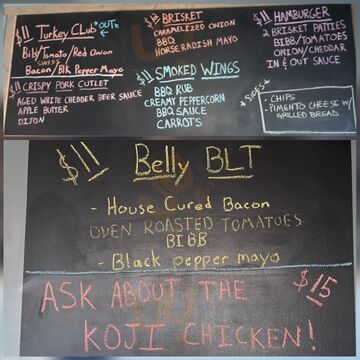 $11 Turkey Club *OUT*
Bibb/Tomato/Red Onion
SWISS
Bacon/Blk Pepper Mayo
$11 CRISPY PORK CUTLET
AGED WHITE CHEDDER BEER SAUCE
APPLE BUTTER
DIJON
BRISKET
CARAMELIZED ONION
BBQ
HORSERADISH MAYO
SMOKED WINGS
BBQ RUB
CREAMY PEPPERCORN
BBQ SAUCE
CARROTS
$11 HAMBURGER
2 BRISKET PATTIES
BIBB/TOMATOES
ONION/CHEDDAR
IN & OUT SAUCE
SIDES
- CHIPS
- PIMENTO CHEESE W/
GRILLED BREAD
$11 Belly BLT
- House Cured Bacon
OVEN ROASTED TOMATOES
BIBB
- Black pepper mayo
ASK ABOUT THE $15
KOJI CHICKEN!